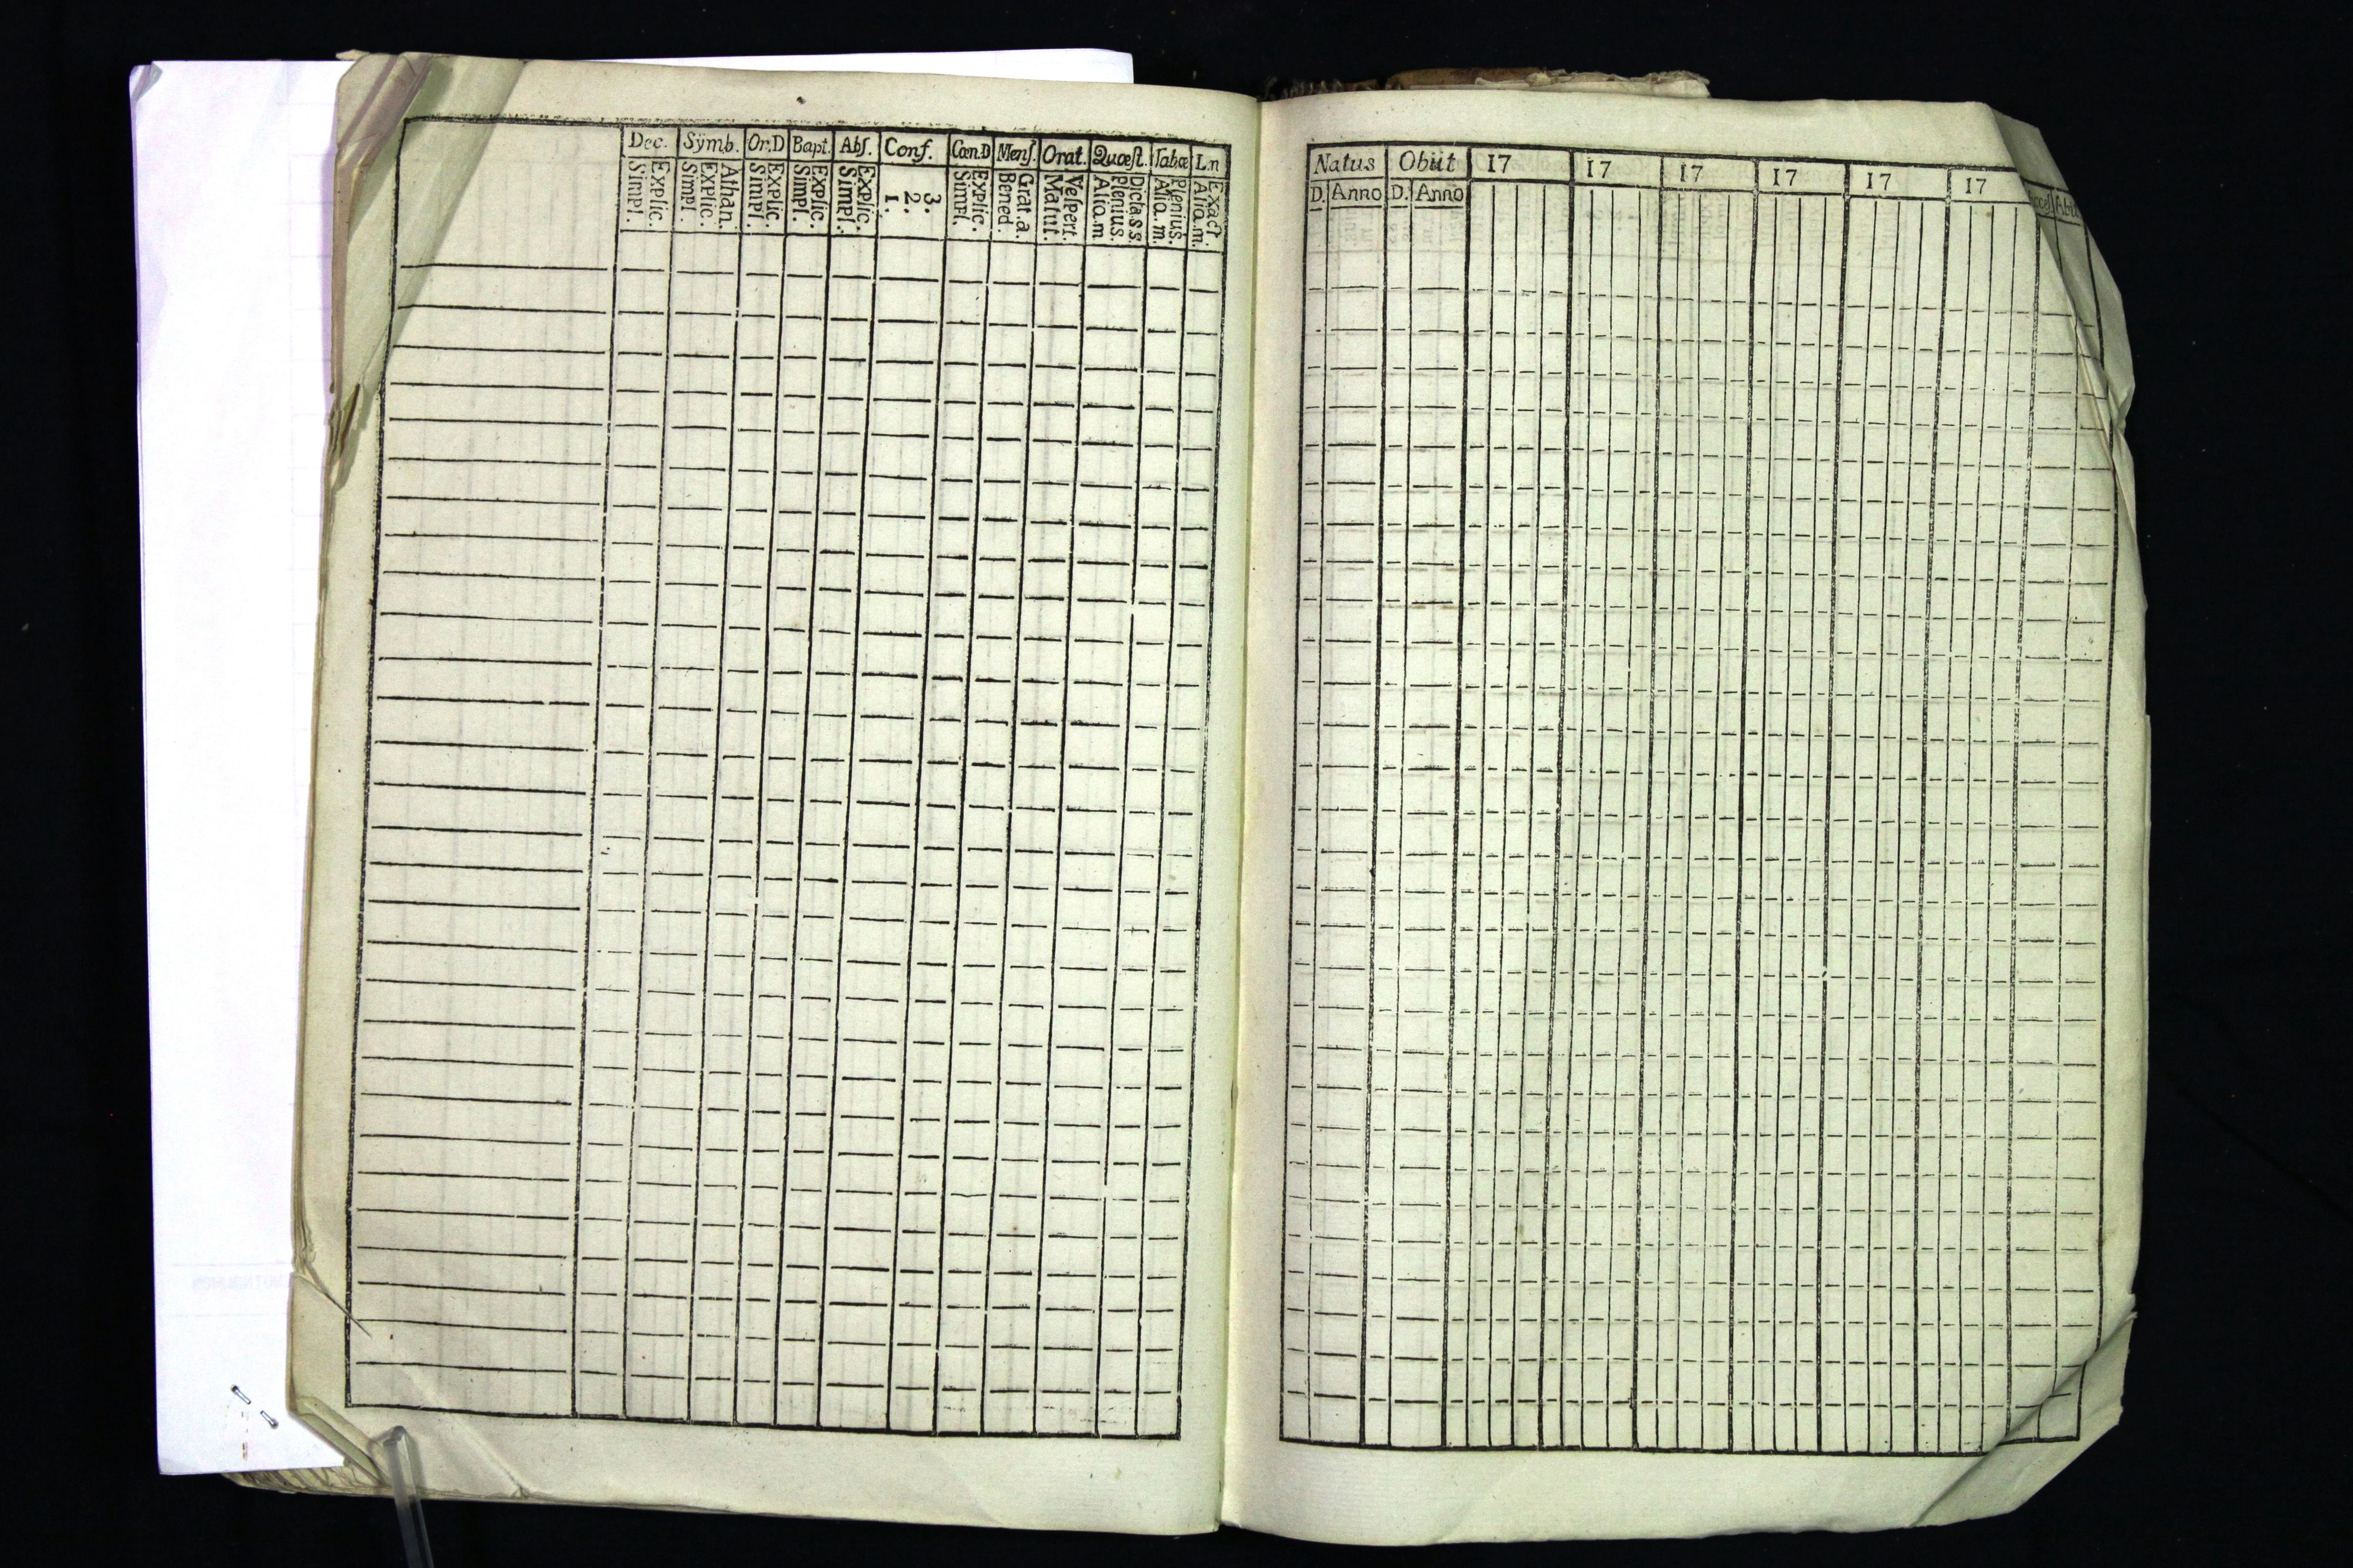 Dec. Sÿmb. Or.D Bapt. Abſ. Conf. Cœn.D Menſ. Orat. Quœſt. Tabœ L.n
Simpl. Explic. Simpl. Explic. Athan. Simpl. Explic. Simpl. Explic. Simpl. Explic. 1. 2. 3. Simpl. Explic. Bened. Grat.a. Matut. Veſpert. Aliq.m Plenius. Diclass. Aliq.m. Plenius. Aliq.m. Exact.
Natus Obiit 17 17 17 17 17 17
D. Anno D. Anno